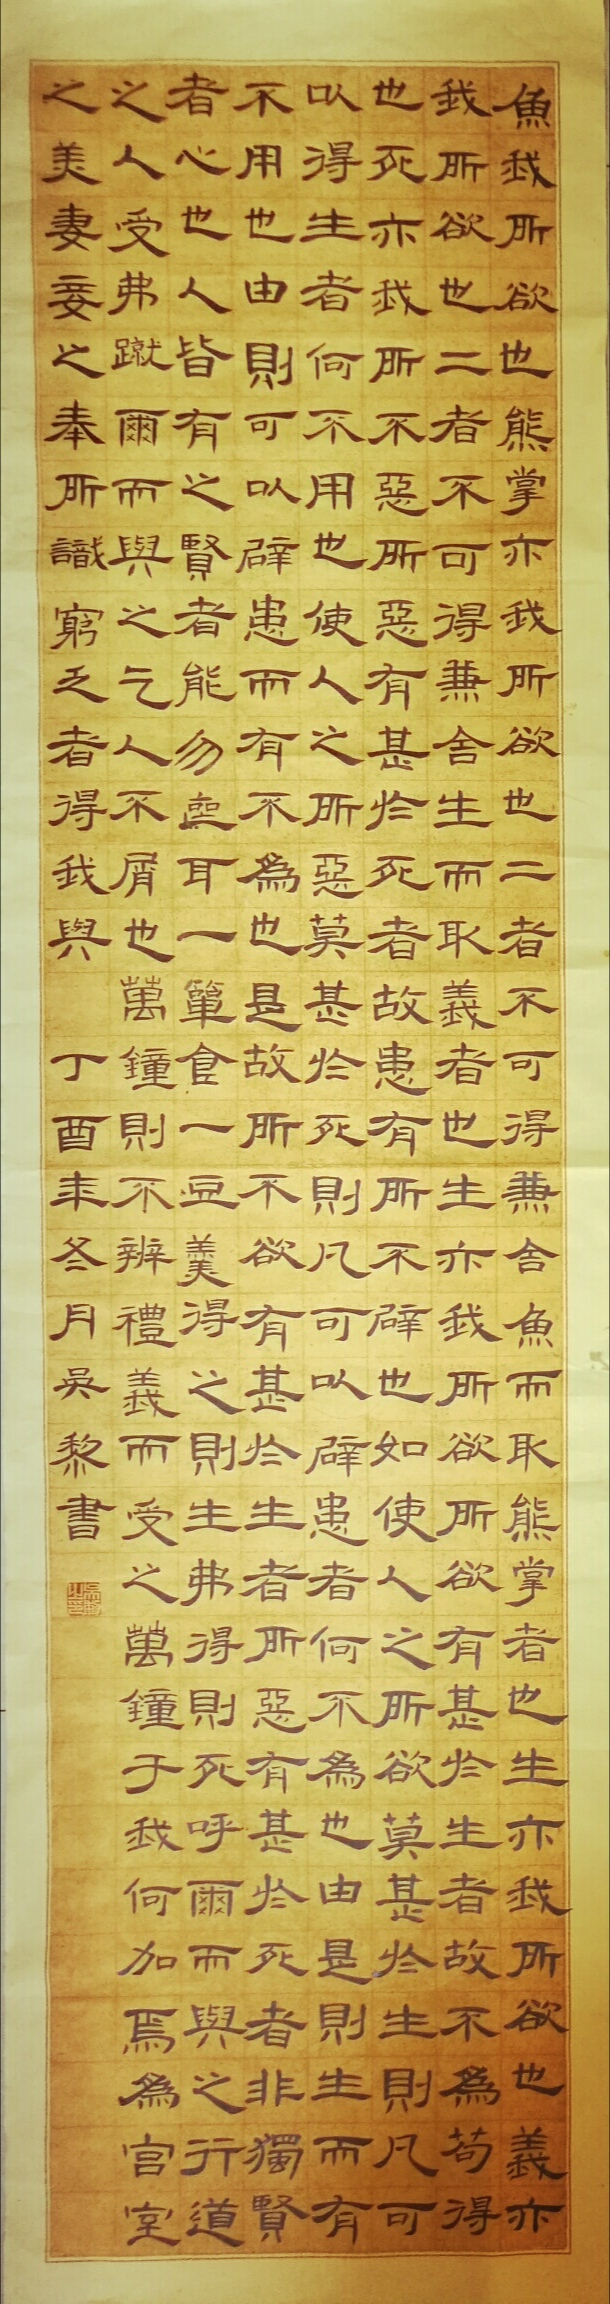 魚我所欲也熊掌亦我所欲也二者不可得兼舍魚而取熊掌者也生亦我所欲也義亦
我所欲也二者不可得兼舍生而取義者也生亦我所欲所欲有甚於生者故不為苟得
也死亦我所不惡所惡有甚於死者故患有所不辟也如使人之所欲莫甚於生則凡可
以得生者何不用也使人之所惡莫甚於死則凡可以辟患者何不為也由是則生而有
不用也由則可以辟患而有不為也是故所不欲有甚於生者所惡有甚於死者非獨賢
者心也人皆有之賢者能勿喪耳一簞食一豆羹得之則生弗得則死呼爾而與之行道
之人受弗蹴爾而與之乞人不屑也萬鐘則不辨禮義而受之萬鐘于我何加焉為宮室
之美妻妾之奉所識窮乏者得我與 丁酉年冬月吳黎書